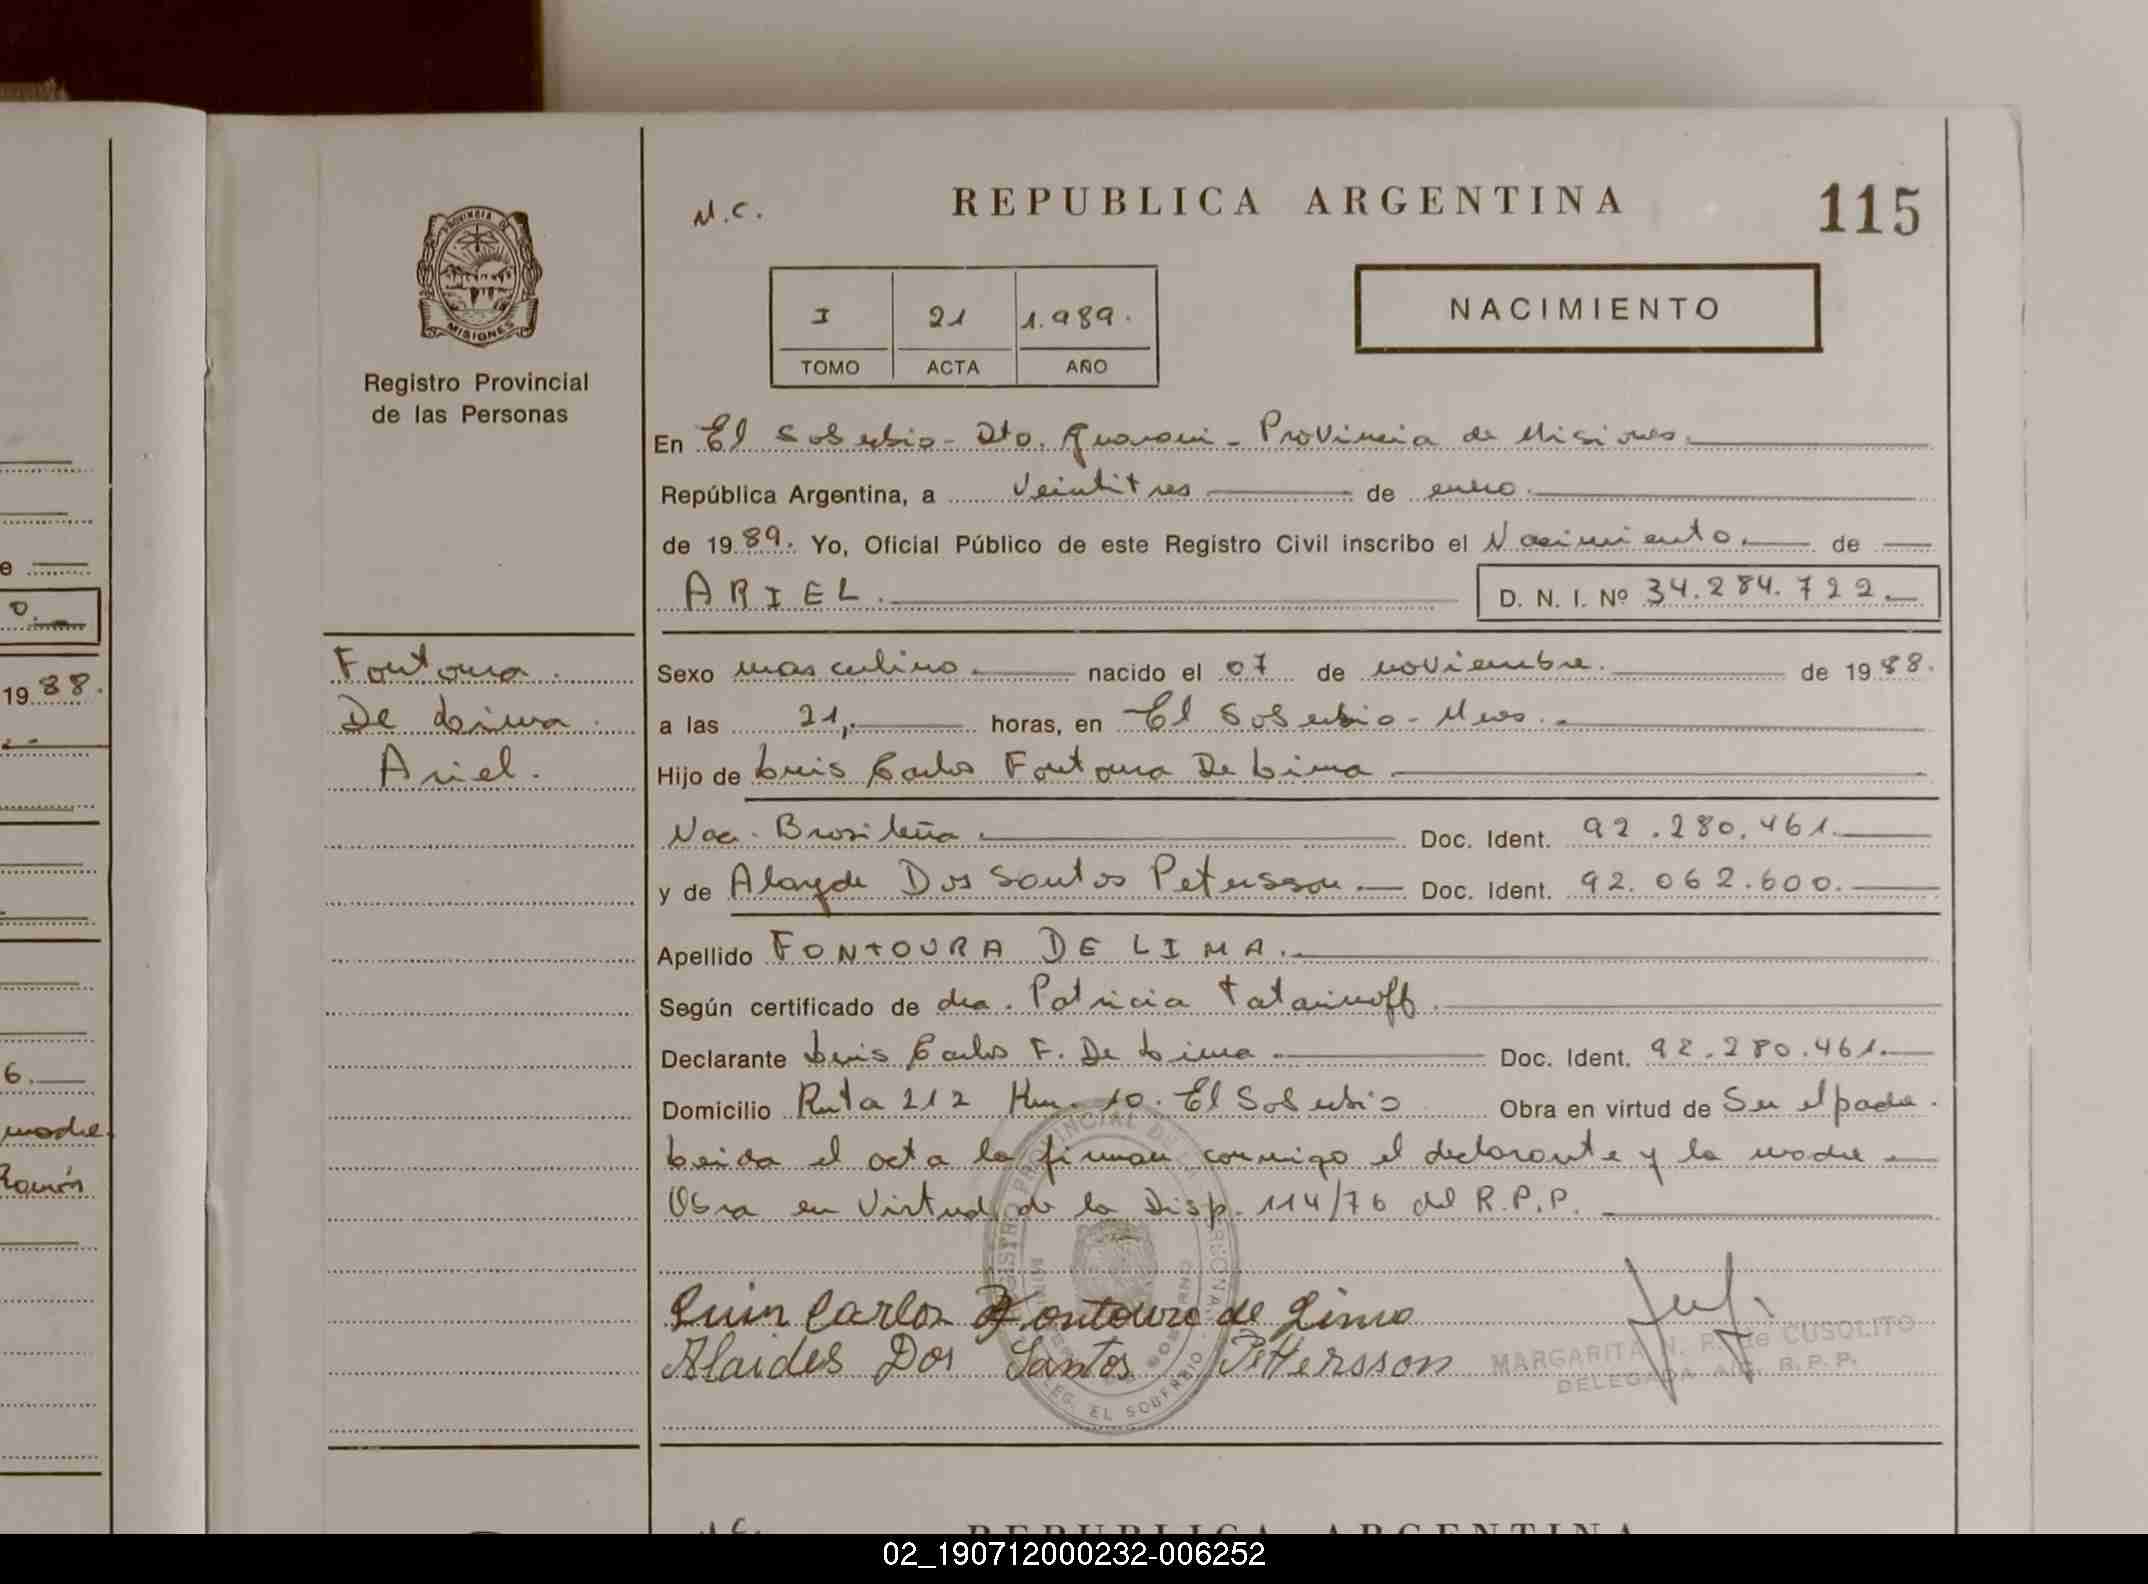 115
REPUBLICA ARGENTINA
N.C.
NACIMIENTO
I 21 1.989.
TOMO ACTA AÑO
PROVINCIA DE
MISIONES
Registro Provincial
de las Personas
En El Soberbio - Dto. Guarani - Provincia de Misiones.
República Argentina, a veintitres de enero.
de 1989. Yo, Oficial Público de este Registro Civil inscribo el Nacimiento. de
ARIEL. D. N. I. Nº 34.284.722.
Fontoura
De Lima
Ariel.
Sexo masculino. nacido el 07 de noviembre. de 1988.
a las 21, horas, en El Soberbio - Mnes.
Hijo de Luis Carlos Fontoura De Lima
Nac. Brasileña Doc. Ident. 92.280.461.
y de Alayde Dos Santos Petersson. Doc. Ident. 92.062.600.
Apellido FONTOURA DE LIMA.
Según certificado de dra. Patricia Tatarinoff.
Declarante Luis Carlos F. De Lima Doc. Ident. 92.280.461.
Domicilio Ruta 212 Km. 10. El Soberbio Obra en virtud de Ser el padre.
Leida el acta la firman conmigo el declarante y la madre
Obra en virtud de la Disp. 114/76 del R.P.P.
Luin Carlos Fontoura de Lima
Alaides Dos Santos Pettersson
MARGARITA N. R. de CUSOLITO
DELEGADA R.P.P.
DELEG. EL SOBERBIO
19 88.
6.
madre.
Ramón
REPUBLICA ARGENTINA
02_190712000232-006252